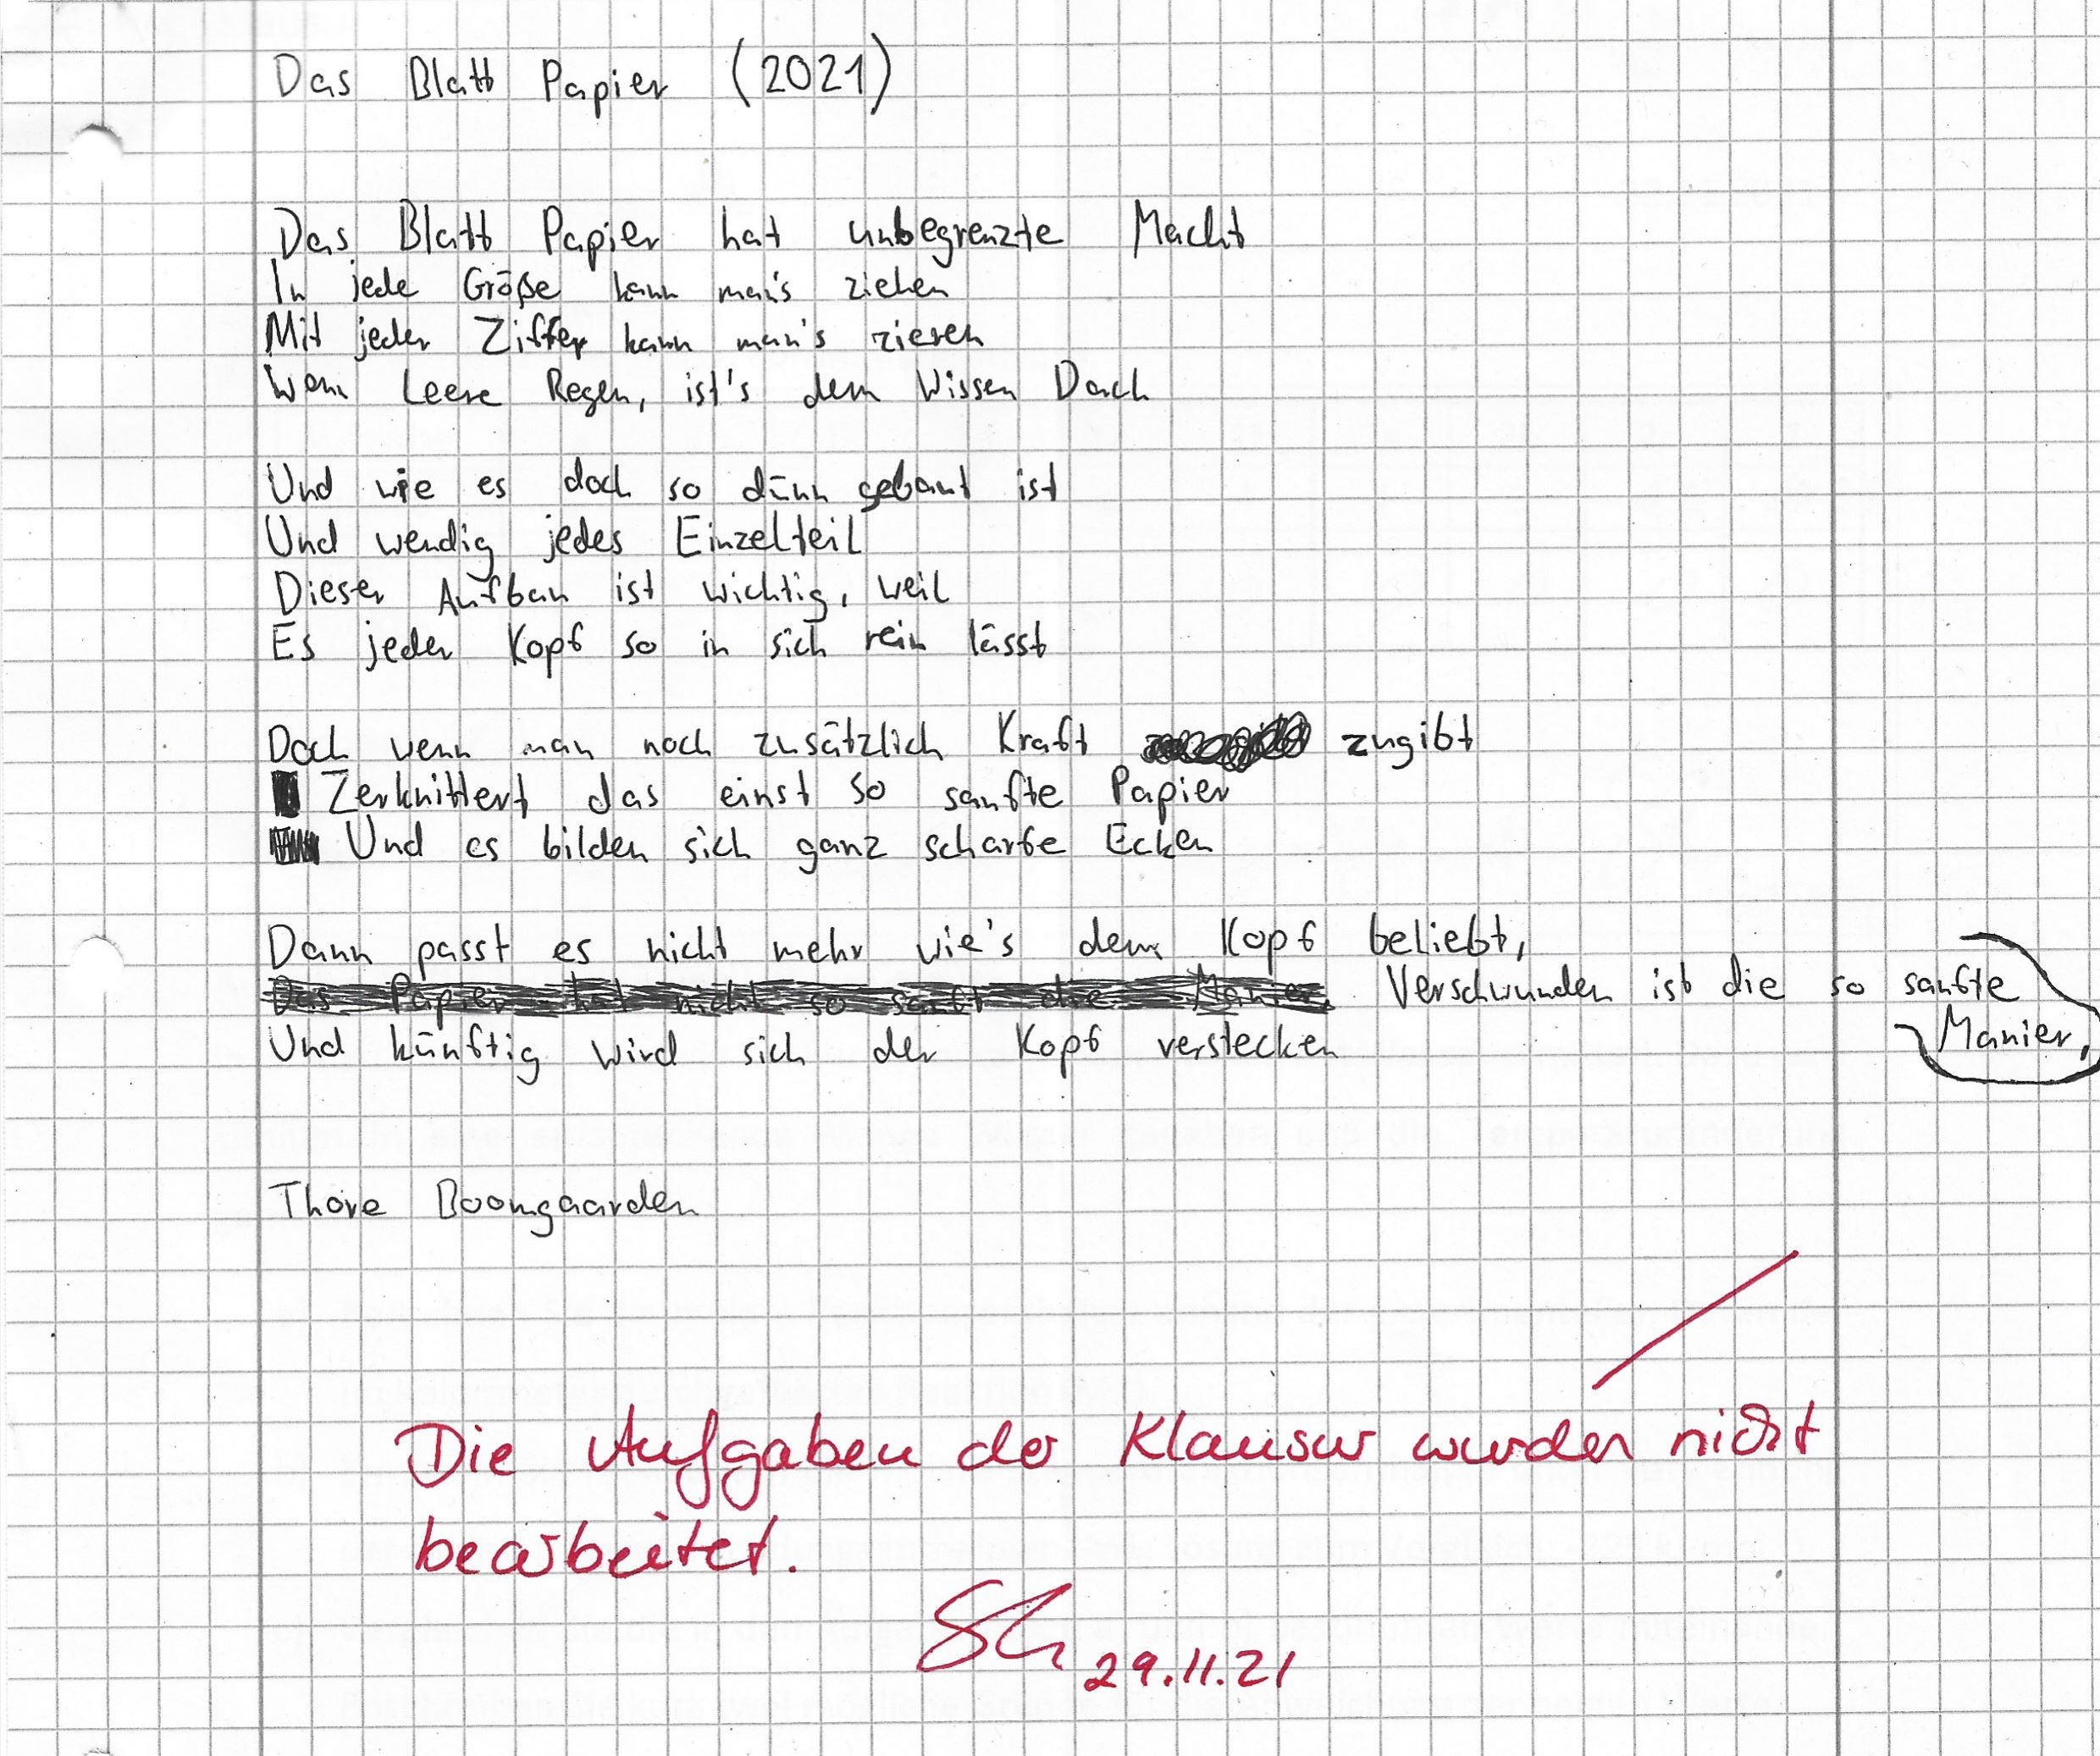 Das Blatt Papier (2021)
Das Blatt Papier hat unbegrenzte Macht
In jede Größe kann man's ziehen
Mit jeder Ziffer kann man's zieren
Wenn Leere Regen, ist's dem Wissen Dach
Und wie es doch so dünn gebaut ist
Und wendig jedes Einzelteil
Dieser Aufbau ist wichtig, weil
Es jeder Kopf so in sich rein lässt
Doch wenn man noch zusätzlich Kraft zugibt
Zerknittert das einst so sanfte Papier
Und es bilden sich ganz scharfe Ecken
Dann passt es nicht mehr wie's dem Kopf beliebt,
Das Papier hat nicht so sanft die Manier, Verschwunden ist die so sanfte
Manier,
Und künftig wird sich der Kopf verstecken
Thore Boomgaarden
Die Aufgaben der Klausur wurden nicht
bearbeitet.
29.11.21